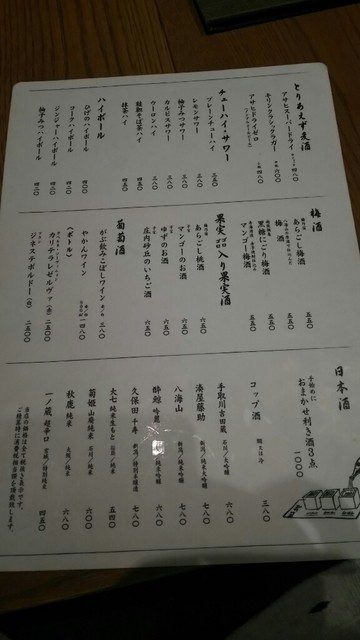 とりあえず麦酒
アサヒスーパードライ 四八〇
キリンクラシックラガー 六〇〇
アサヒドライゼロ
チューハイ・サワー
プレーンチューハイ 三五〇
レモンサワー 三八〇
柚子みつサワー 三八〇
カルピスサワー 三八〇
ウーロンハイ 三八〇
韃靼そば茶ハイ 四五〇
抹茶ハイ 四五〇
ハイボール
ひげのハイボール 四二〇
コークハイボール 四二〇
ジンジャーハイボール 四二〇
柚子みつハイボール 四二〇
梅酒
あらごし梅酒 五五〇
梅酒 五五〇
黒糖にごり梅酒 五五〇
マンゴー梅酒 五五〇
果実ゴロゴロ入り果実酒
あらごし桃酒 六五〇
マンゴーのお酒 六五〇
ゆずのお酒 六五〇
庄内砂丘のいちご酒 六五〇
葡萄酒
がぶ飲みこぼしワイン 三八〇
やかんワイン 一四八〇
〈ボトル〉
カリテラレゼルヴァ(赤) 二五〇〇
ジネステボルドー(白) 二五〇〇
日本酒
手始めに
おまかせ利き酒3点 一〇〇〇
コップ酒 燗又は冷 三八〇
手取川 吉田蔵 石川/大吟醸 六八〇
湊屋藤助 新潟/純米大吟醸 七八〇
八海山 新潟/純米吟醸 七八〇
酔鯨 吟麗 高知/純米吟醸 六八〇
久保田 千寿 新潟/特別本醸造 七八〇
大七 純米生もと 福島/純米 五四〇
菊姫 山廃純米 石川/純米 六〇〇
秋鹿 純米 大阪/純米 六八〇
一ノ蔵 超辛口 宮城/特別純米 四五〇
当店の価格は全て税抜き表示です。
ご精算時に消費税相当額を頂戴致します。